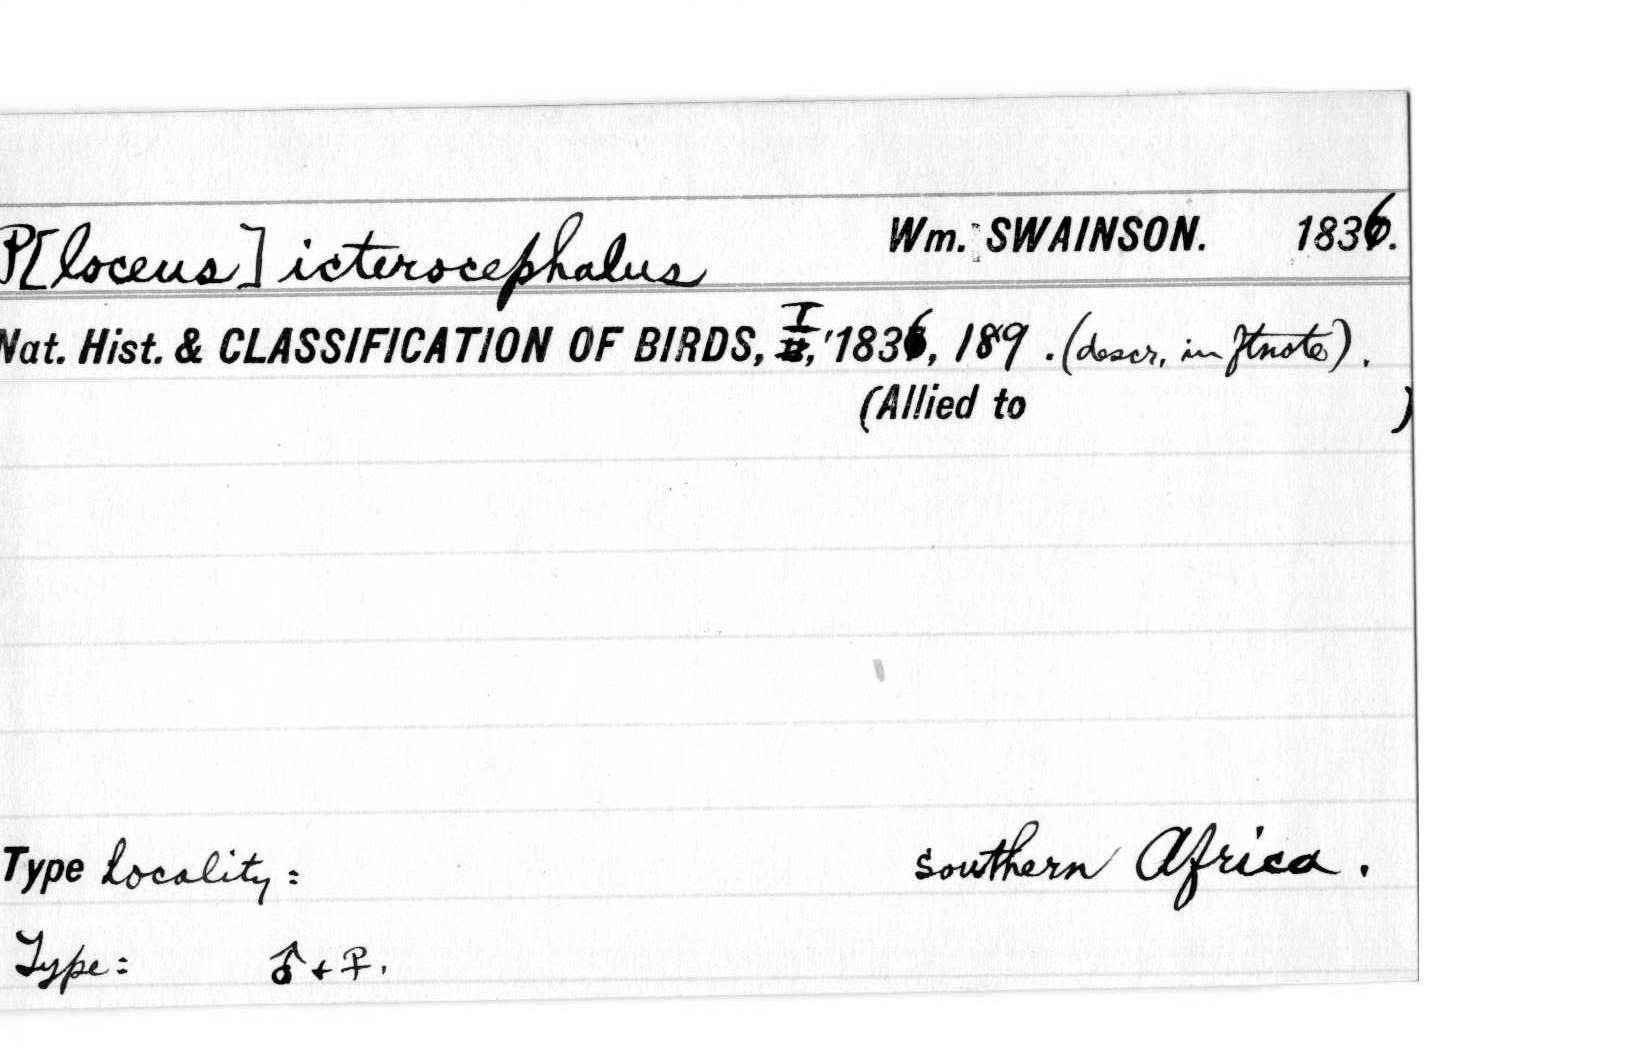 P[loceus] icterocephalus Wm. SWAINSON. 1836.
Nat. Hist. & CLASSIFICATION OF BIRDS, I, '1836, 189 . (descr. in ftnote).
(Allied to )
Type Locality: Southern Africa.
Type: ♂ + ♀.